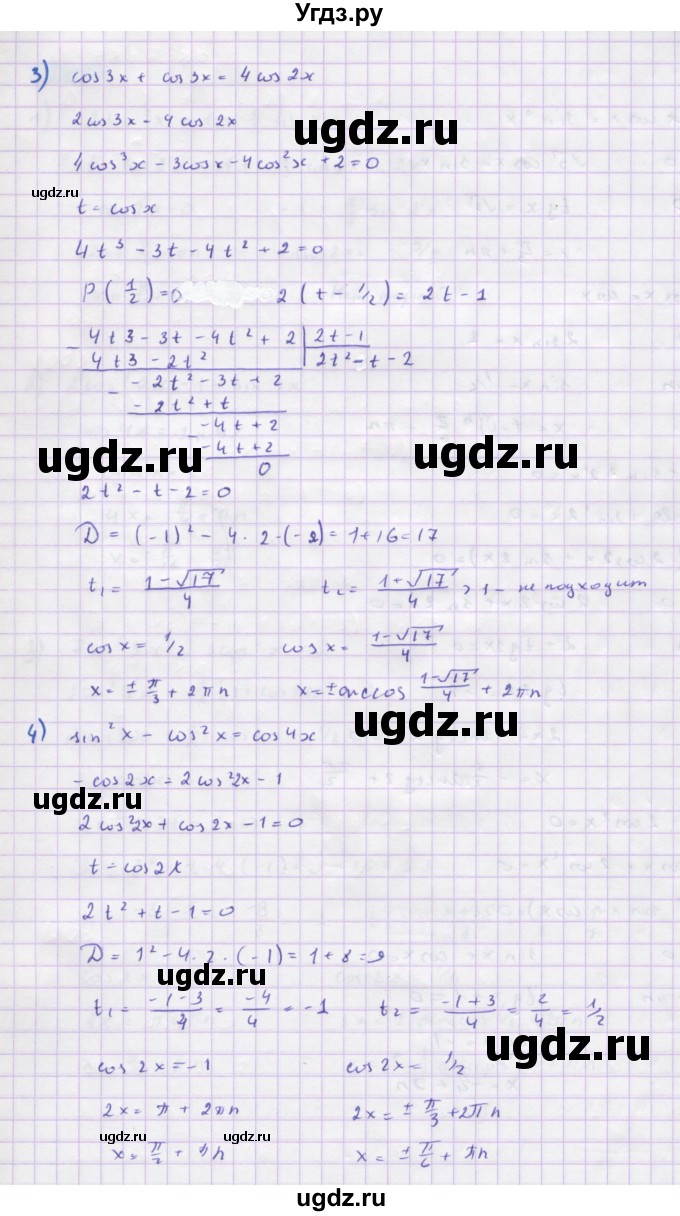 Угдз.ру
3) cos 3x + cos 3x = 4 cos 2x
2 cos 3x - 4 cos 2x
ugdz.ru
4 cos³x - 3cos x - 4cos²x + 2 = 0
ugdz.ru
t = cos x
4t³ - 3t - 4t² + 2 = 0
P(1/2) = 0 2(t - 1/2) = 2t - 1
- 4t3 - 3t - 4t² + 2 | 2t - 1
4t3 - 2t² | 2t² - t - 2
- - 2t² - 3t + 2
- 2t² + t
- -4t + 2
-4t + 2
0
ugdz.ru ugdz.ru
2t² - t - 2 = 0
D = (-1)² - 4 · 2 · (-2) = 1 + 16 = 17
t₁ = (1 - √17)/4 t₂ = (1 + √17)/4 > 1 - не подходит
cos x = 1/2 cos x = (1 - √17)/4
x = ± π/3 + 2πn x = ± arccos (1 - √17)/4 + 2πn
ugdz.ru
4) sin²x - cos²x = cos 4x
- cos 2x = 2 cos²2x - 1
ugdz.ru
2 cos²2x + cos 2x - 1 = 0
t = cos 2x
2t² + t - 1 = 0
D = 1² - 4 · 2 · (-1) = 1 + 8 = 9
ugdz.ru
t₁ = (-1 - 3)/4 = -4/4 = -1 t₂ = (-1 + 3)/4 = 2/4 = 1/2
ugdz.ru
cos 2x = -1 cos 2x = 1/2
2x = π + 2πn 2x = ± π/3 + 2πn
ugdz.ru ugdz.ru
x = π/2 + πn x = ± π/6 + πn
ugdz.ru